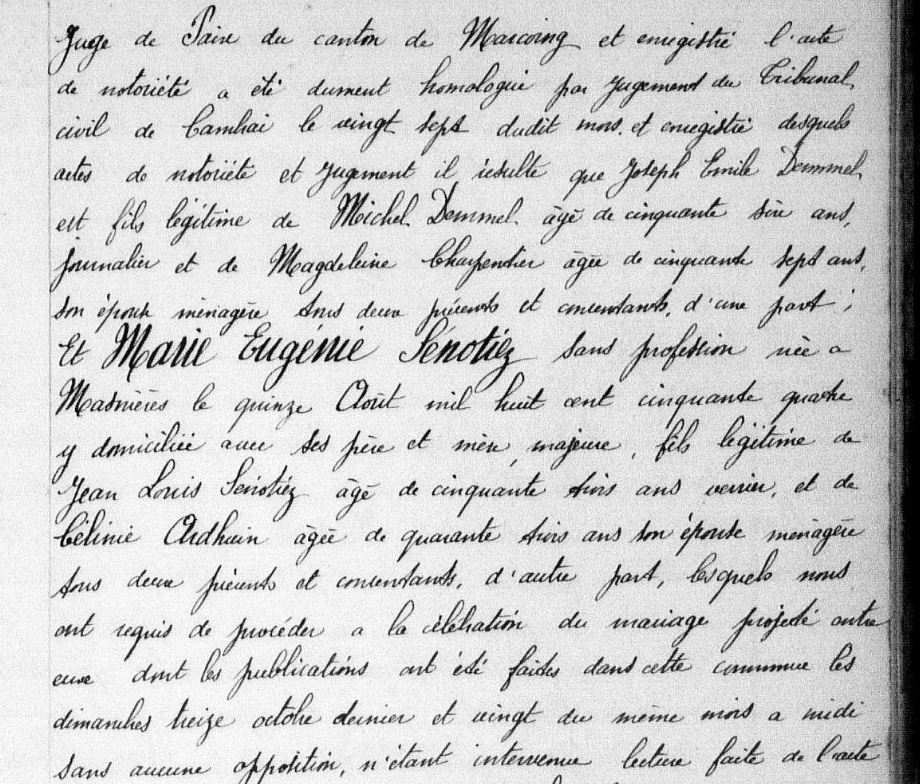 Juge de Paix du canton de Marcoing et enregistré l'acte
de notoriété a été dument homologué par Jugement du Tribunal
civil de Cambrai le vingt sept dudit mois. et enregistré desquels
actes de notoriété et Jugement il résulte que Joseph Emile Demmel
est fils légitime de Michel Demmel. âgé de cinquante six ans,
journalier et de Magdeleine Charpentier âgée de cinquante sept ans,
son épouse ménagère tous deux présents et consentants, d'une part ;
Et Marie Eugénie Sénotiez sans profession née a
Masnières le quinze Août mil huit cent cinquante quatre
y domiciliée avec ses père et mère, majeure, fils légitime de
Jean Louis Sénotiez âgé de cinquante trois ans verrier, et de
Célinie Ardhuin âgée de quarante trois ans son épouse ménagère
tous deux présents et consentants, d'autre part, lesquels nous
ont requis de procéder a la célébration du mariage projeté entre
eux dont les publications ont été faites dans cette commune les
dimanches treize octobre dernier et vingt du même mois a midi
sans aucune opposition, n'étant intervenue lecture faite de l'acte